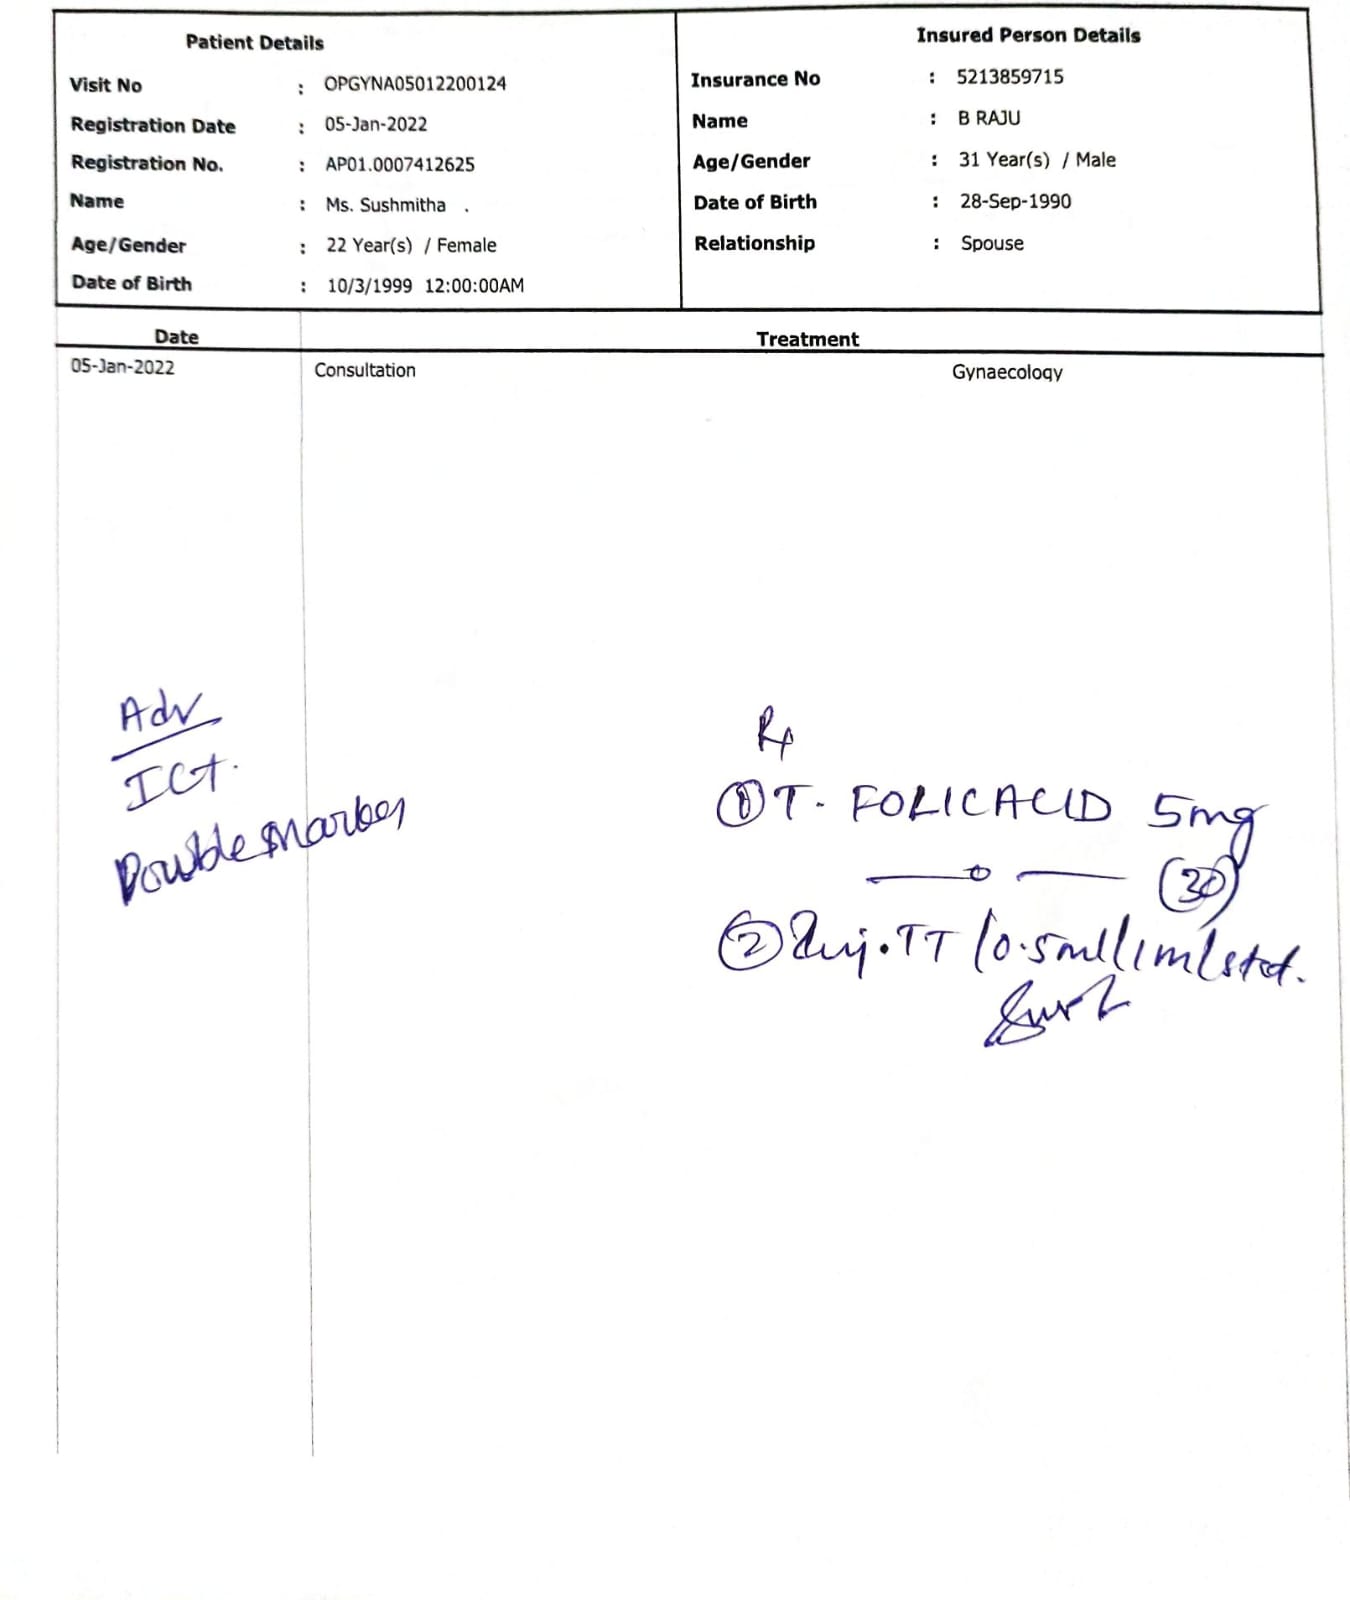 Patient Details
Visit No : OPGYNA05012200124
Registration Date : 05-Jan-2022
Registration No. : AP01.0007412625
Name : Ms. Sushmitha .
Age/Gender : 22 Year(s) / Female
Date of Birth : 10/3/1999 12:00:00AM
Insured Person Details
Insurance No : 5213859715
Name : B RAJU
Age/Gender : 31 Year(s) / Male
Date of Birth : 28-Sep-1990
Relationship : Spouse
Date Treatment
05-Jan-2022 Consultation Gynaecology
Adv
ICT.
Double Marker
Rx
① T. FOLICACID 5mg
— o — (30)
② Inj. TT / 0.5ml / IM / stat.